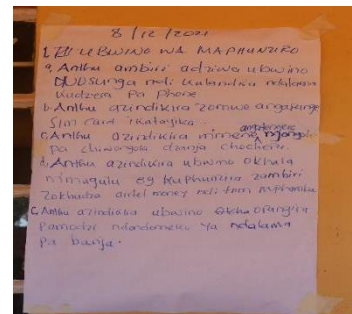 8/12/2021
1. UBWINO WA MAPHUNZIRO
a. Anthu ambiri adziwa ubwino
osunga ndi kulandira ndalama
kudzera pa phone
b. Anthu azindikira zomwe angapange
Sim card ikatayika.
c. Anthu azindikira mmene angatengere ngongole
pa chiwongola dzanja chochein.
d. Anthu azindikira ubwino okhala
mmagulu eg kuphunzira zambiri
zokhudza airtel money ndi tnm mphamba
Anthu azindikira ubwino opangira
pamodzi ndondomeko ya ndalama
pa banja.